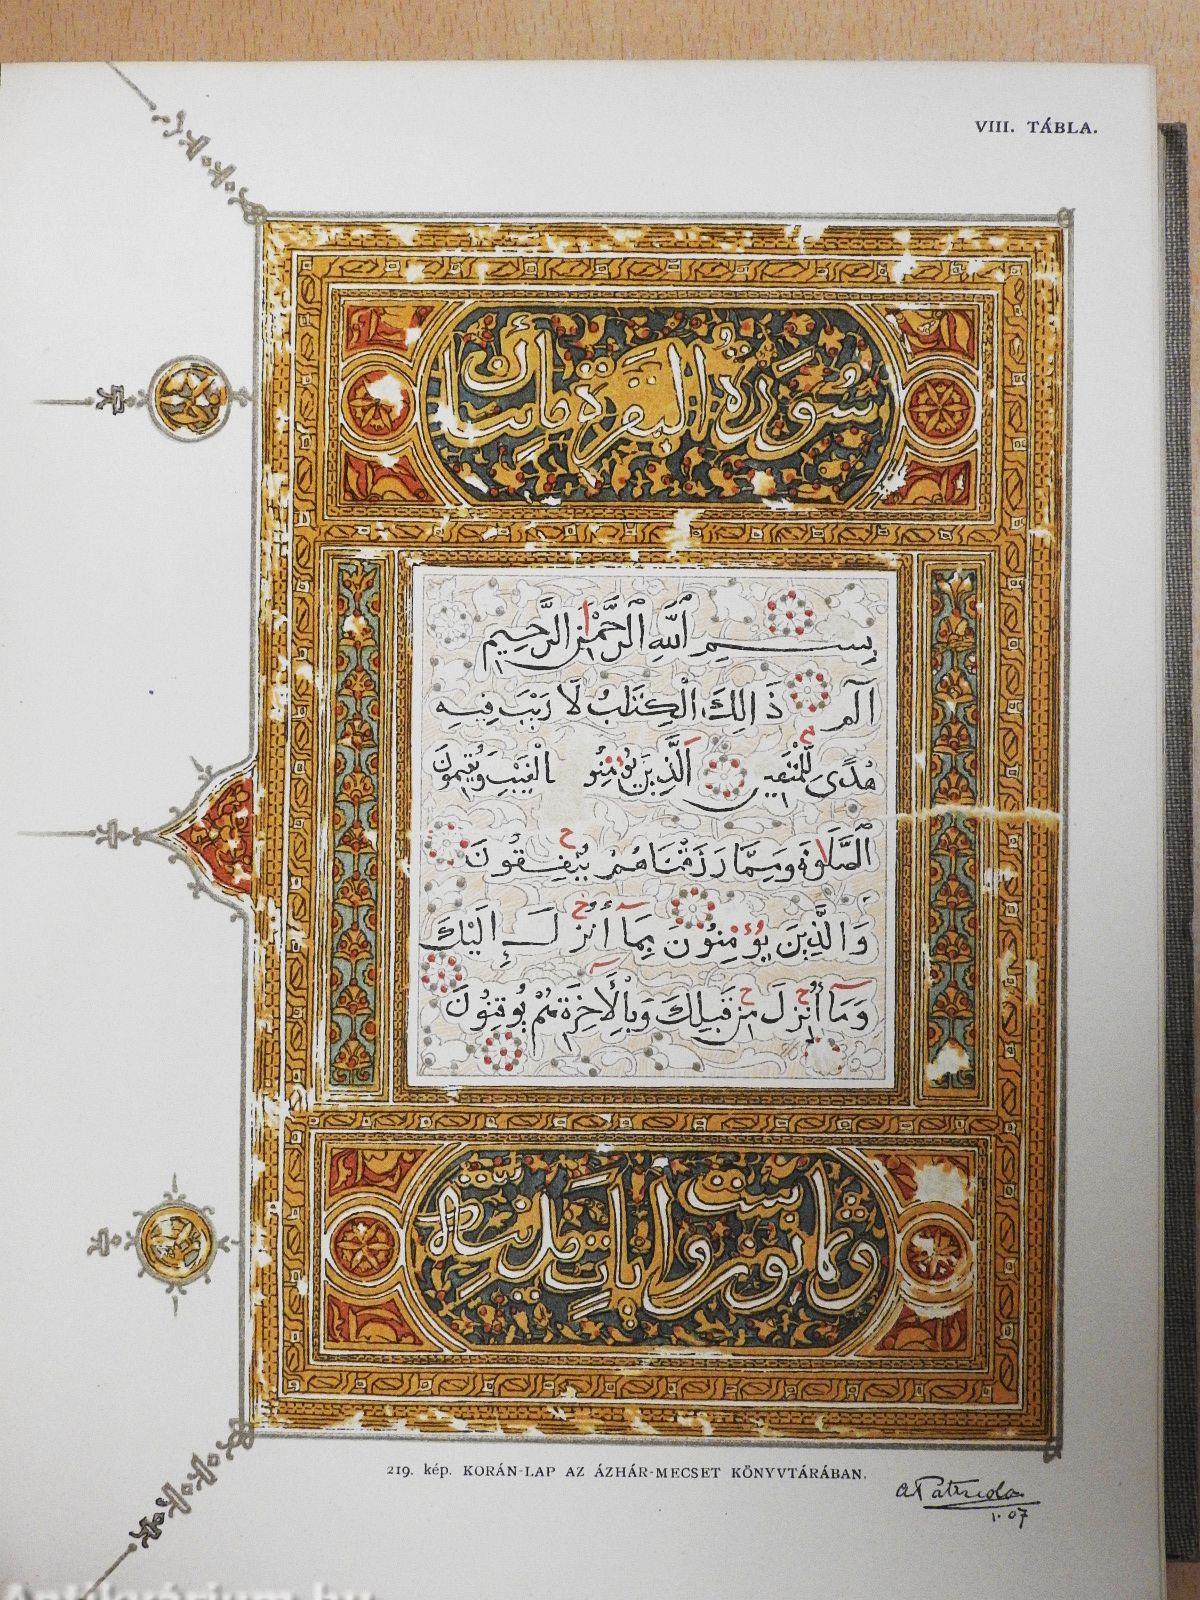 VIII. TÁBLA.
سُورَةُ الْبَقَرَةِ مِائَتَانِ
بِسْمِ ٱللَّهِ ٱلرَّحْمَٰنِ ٱلرَّحِيمِ
الم ذَالِكَ الْكِتَٰبُ لَا رَيْبَ فِيهِ
هُدًى لِّلْمُتَّقِينَ الَّذِينَ يُؤْمِنُو بالْغَيْبِ وَيُقِيمُونَ
الصَّلَوٰةَ وَمِمَّا رَزَقْنَاهُمْ يُنْفِقُونَ
وَالَّذِينَ يُؤْمِنُونَ بِمَآ أُنْزِلَ إِلَيْكَ
وَمَآ أُنْزِلَ مِنْ قَبْلِكَ وَبِالْآخِرَةِ هُمْ يُوقِنُونَ
وثمانون وست آيات مدنية
219. kép. KORÁN-LAP AZ ÁZHÁR-MECSET KÖNYVTÁRÁBAN.
1.07